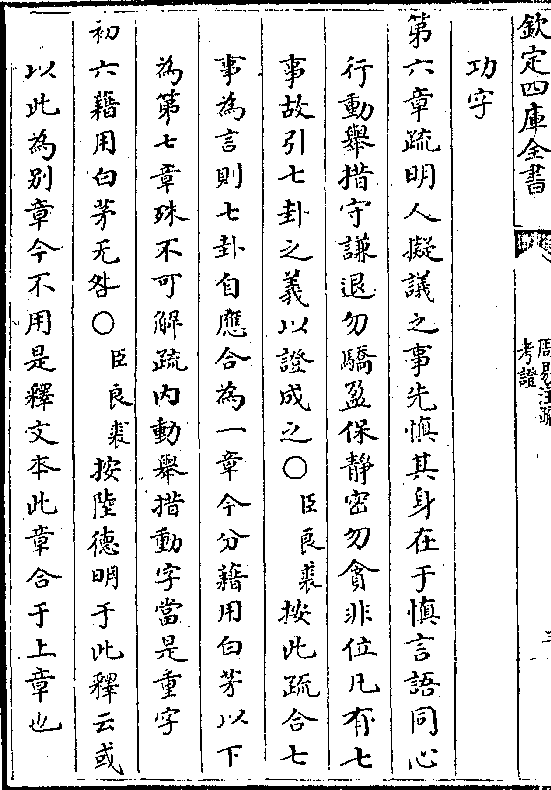 欽定四庫全書
周易注疏
考證
功字
第六章疏明人擬議之事先慎其身在于慎言語同心
行動舉措守謙退勿驕盈保靜密勿貪非位凡有七
事故引七卦之義以證成之○臣良裘按此疏合七
事為言則七卦自應合為一章今分藉用白茅以下
為第七章殊不可解疏内動舉措動字當是重字
初六藉用白茅无咎○臣良裘按陸德明于此釋云或
以此為別章今不用是釋文本此章合于上章也